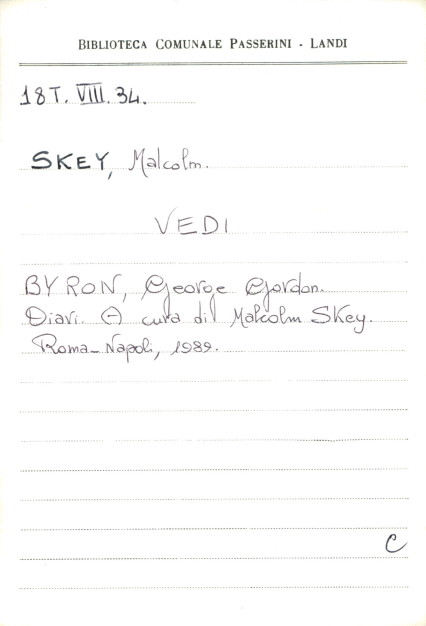 BIBLIOTECA COMUNALE PASSERINI - LANDI
18T. VIII. 34.
SKEY, Malcolm.
VEDI
BYRON, George Gordon.
Diari. A cura di Malcolm Skey.
Roma-Napoli, 1989.
C